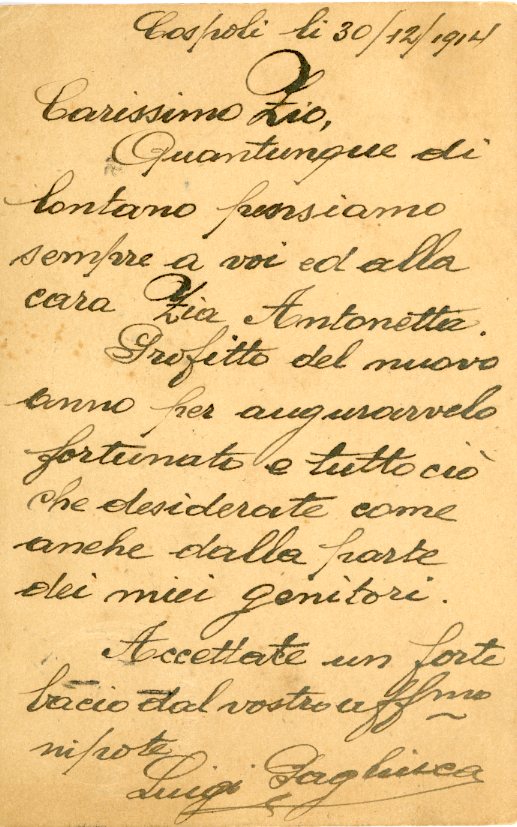 Cospoli li 30/12/1914
Carissimo Zio,
Quantunque di
lontano pensiamo
sempre a voi ed alla
cara Zia Antonetta.
Profitto del nuovo
anno per augurarvelo
fortunato e tutto ciò
che desiderate come
anche dalla parte
dei miei genitori.
Accettate un forte
bacio dal vostro affmo
nipote
Luigi